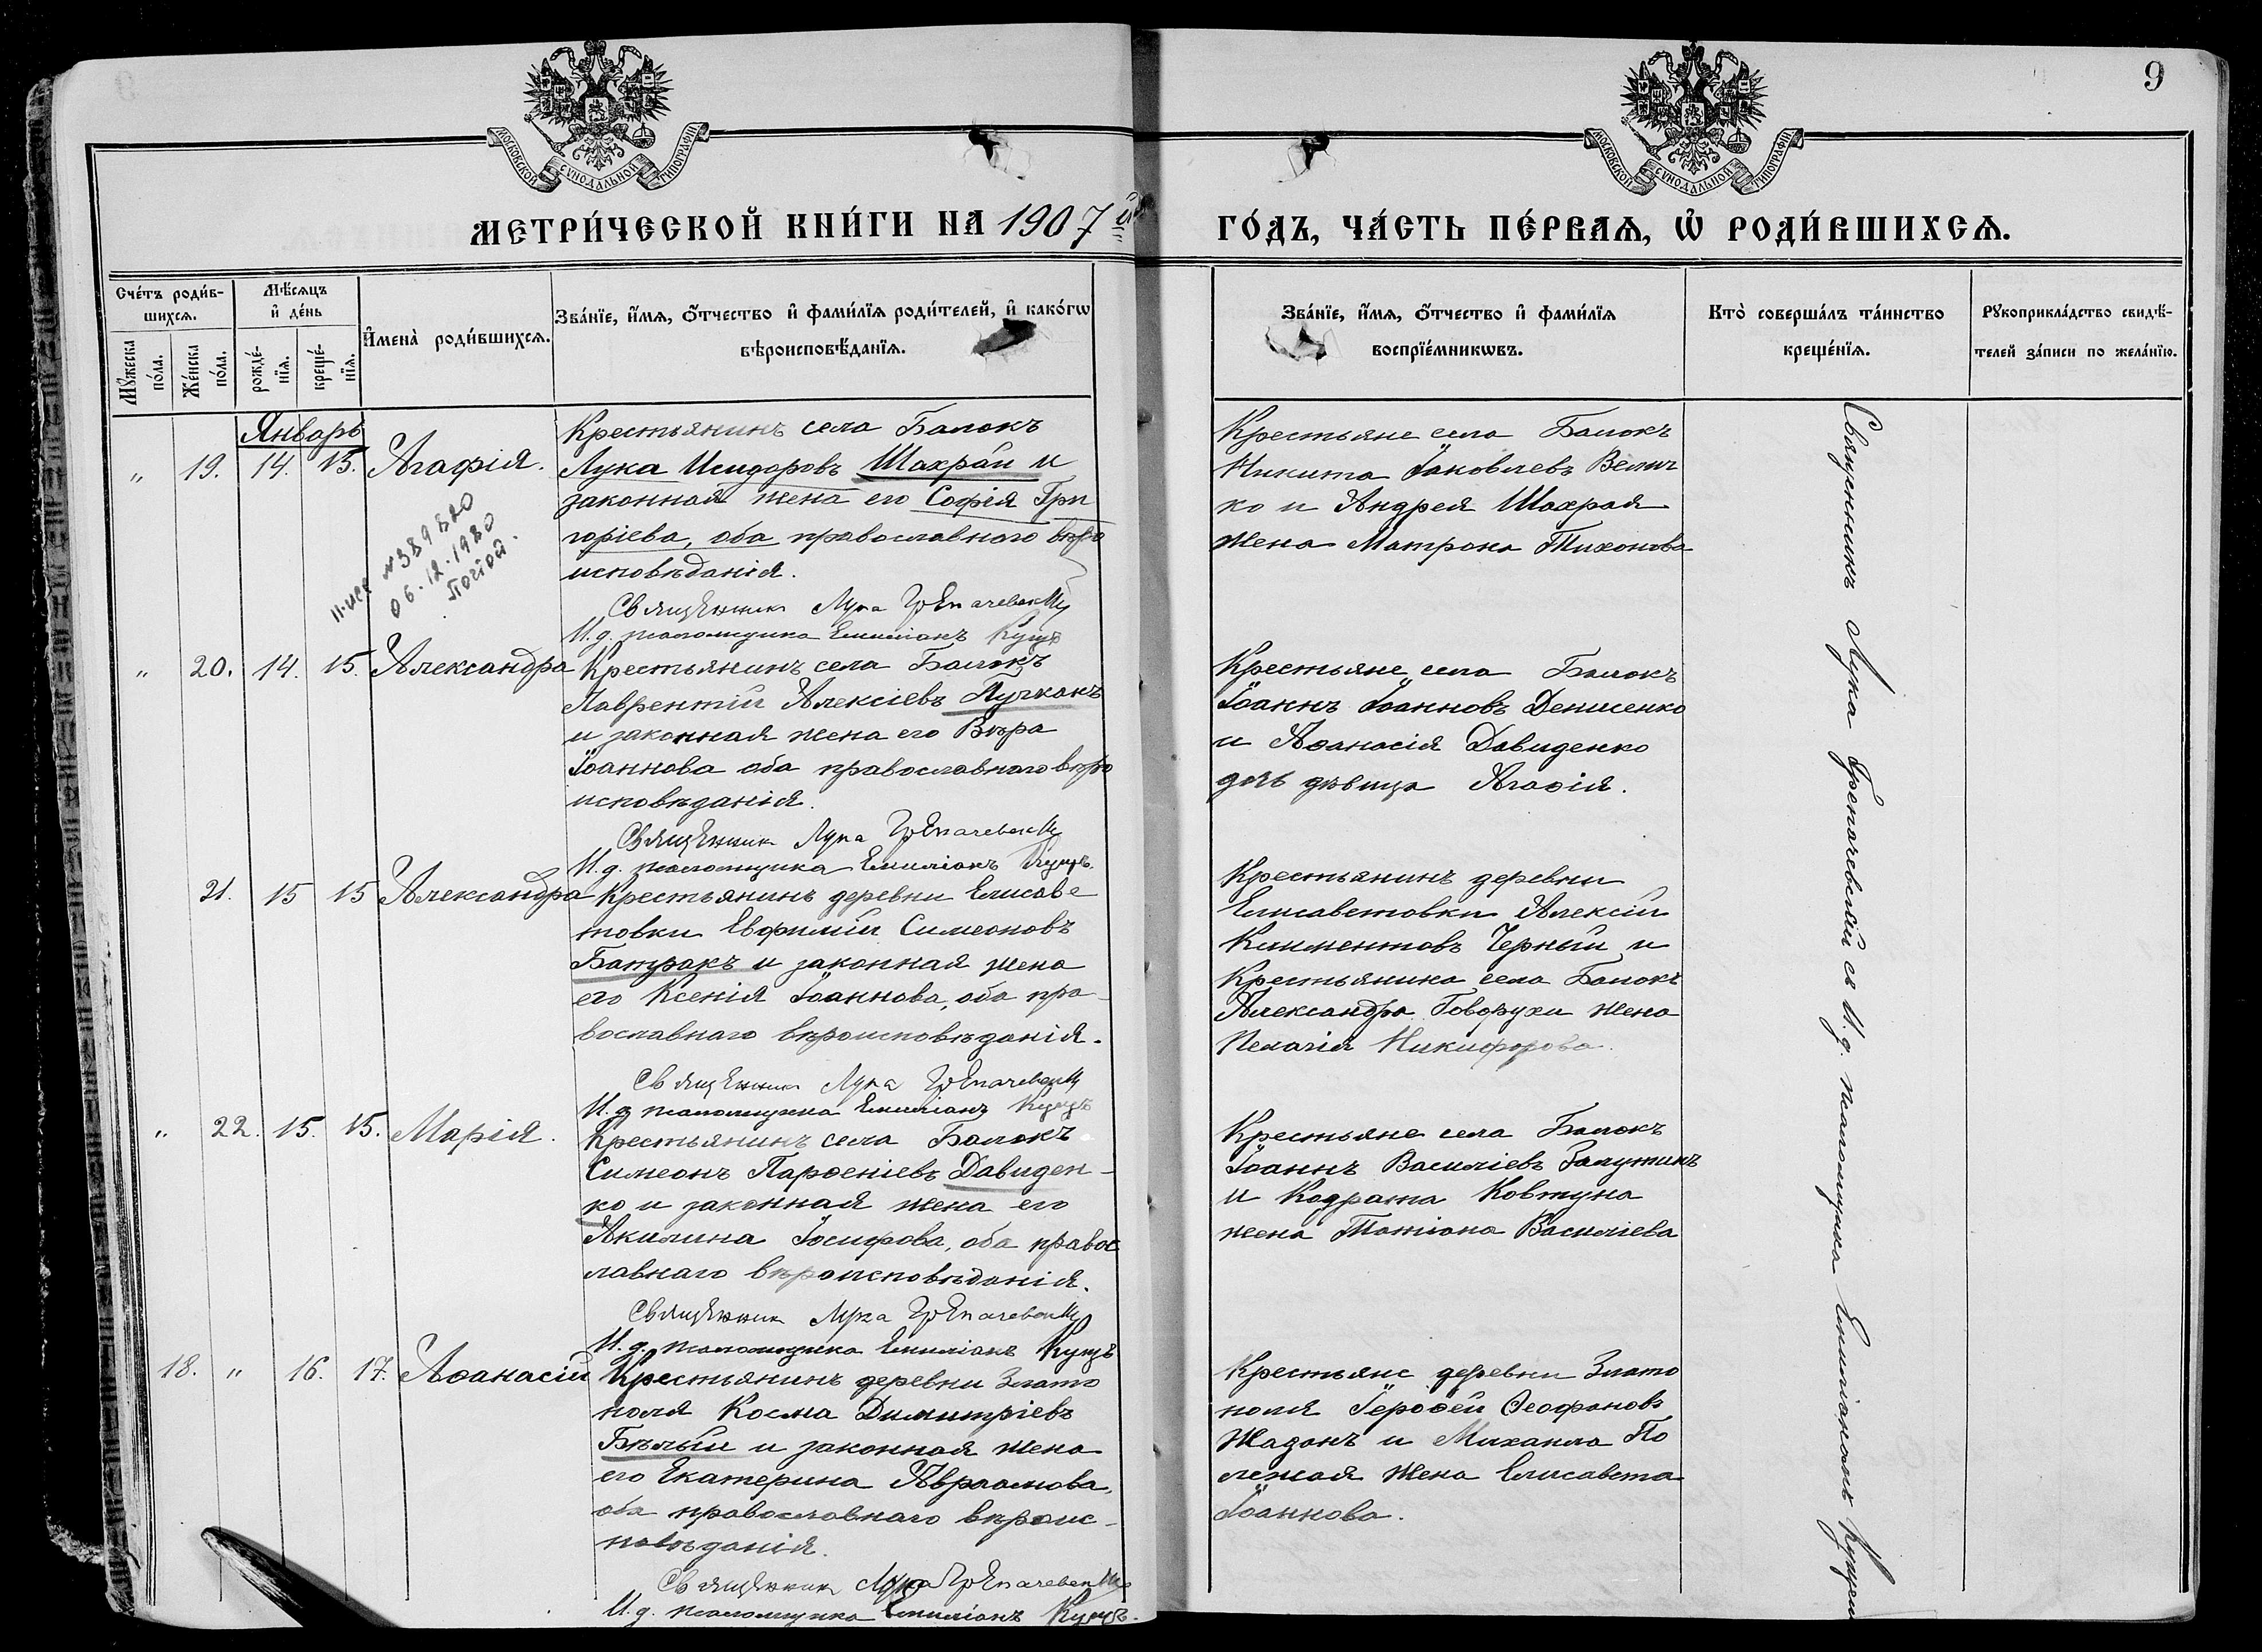 9
МОСКОВСКОЙ СУНОДАЛЬНОЙ ТИПОГРАФІИ
МОСКОВСКОЙ СУНОДАЛЬНОЙ ТИПОГРАФІИ
МЕТРИ́ЧЕСКОЙ КНИ́ГИ НА 1907 й
ГО́ДЪ, ЧА́СТЬ ПЕ́РВАѦ, Ѡ҆ РОДИ́ВШИХСѦ.
Сче́тъ роди́в-
шихсѧ.
Мꙋжеска по́ла.
Же́нска по́ла.
Мѣ́сѧцъ
и҆ де́нь
рожде́-
нїѧ.
креще́-
нїѧ.
И҆мена̀ роди́вшихсѧ.
Зва́нїе, и҆́мѧ, ѻ҆́тчество и҆ фами́лїѧ роди́телей, и҆ како́гѡ
вѣроисповѣ́данїѧ.
Зва́нїе, и҆́мѧ, ѻ҆́тчество и҆ фами́лїѧ
воспрїе́мникѡвъ.
Кто̀ соверша́лъ та́инство
креще́нїѧ.
Рꙋкоприкла́дство свидѣ́-
телей за́писи по жела́нїю.
Январь
" 19. 14. 15. Агафія.
Крестьянинъ села Балокъ
Лука Исидоровъ Шахрай и
законная жена его Софія Гри
горіева, оба православнаго вѣро
исповѣданія.
Священник Лука Грепачевскій
И.д. псаломщика Емиліанъ Куцъ
№389820
06.12.1980
Крестьяне села Балокъ
Никита Іаковлевъ Велич
ко и Андрея Шахрая
жена Матрона Тихонова
" 20. 14. 15. Александра
Крестьянинъ села Балокъ
Лаврентій Алексіевъ Пучканъ
и законная жена его Вѣра
Іоаннова оба православнаго вѣро
исповѣданія.
Священник Лука Грепачевскій
И.д. псаломщика Емиліанъ Куцъ.
Крестьяне села Балокъ
Іоаннъ Іоанновъ Денисенко
и Аѳанасія Давиденко
дочь дѣвица Агаѳія.
21. 15 15 Александра
Крестьянинъ деревни Елисаве
товки Евфимій Симеоновъ
Батракъ и законная жена
его Ксенія Іоаннова, оба пра-
вославнаго вѣроисповѣданія.
Священник Лука Грепачевскій
И.д. псаломщика Емиліанъ Куцъ
Крестьянинъ деревни
Елисаветовки Алексій
Климентовъ Черный и
Крестьянина села Балокъ
Александра Говорухи жена
Пелагія Никифорова.
" 22. 15. 15. Марія.
Крестьянинъ села Балокъ
Симеонъ Парѳеніевъ Давиден-
ко и законная жена его
Акилина Іосифова, оба правос
лавнаго вѣроисповѣданія.
Священник Лука Грепачевскій
И.д. псаломщика Емиліанъ Куцъ
Крестьяне села Балокъ
Іоаннъ Василіевъ Галушинъ
и Кодрата Ковтуна
жена Татіана Василіева
18. " 16. 17. Аѳанасій
Крестьянинъ деревни Злато
поля Косма Димитріевъ
Бѣлый и законная жена
его Екатерина Авраамова,
оба православнаго вѣроис-
повѣданія.
Священник Лука Грепачевскій
И.д. псаломщика Емиліанъ Куцъ.
Крестьяне деревни Злато
поля Іероѳей Ѳеофановъ
Жаданъ и Михаила По
лежая жена Елисавета
Іоаннова.
Священникъ Лука Грепачевскій съ И.д. псаломщика Емиліаномъ Куцемъ